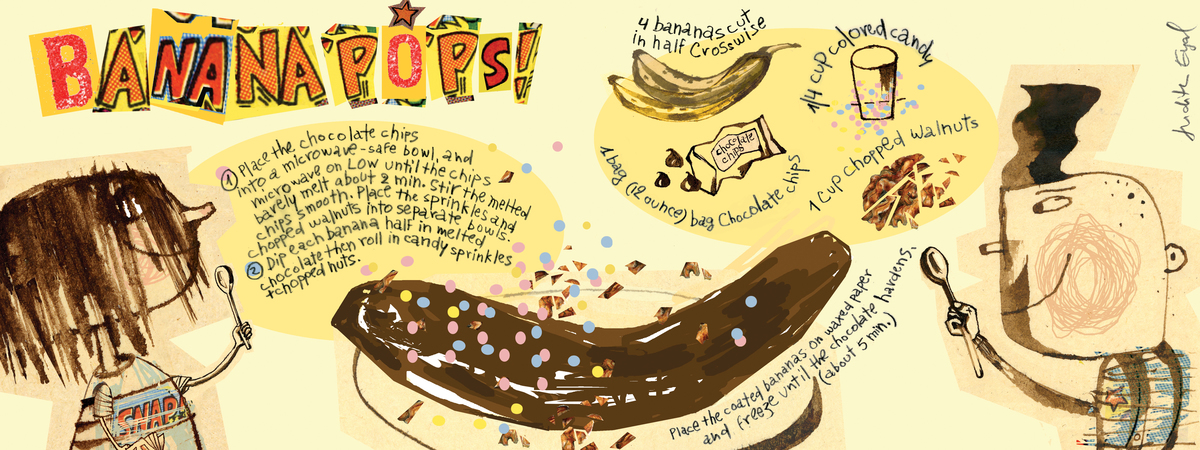 BANANA POPS!
① Place the chocolate chips
into a microwave-safe bowl, and
microwave on Low until the chips
barely melt about 2 min. Stir the melted
chips smooth. Place the sprinkles and
chopped walnuts into separate bowls.
② Dip each banana half in melted
chocolate then roll in candy sprinkles
+chopped nuts.
4 bananas cut
in half Crosswise
1/4 cup colored candy
chocolate
chips
1 bag (12 ounce) bag Chocolate chips
1 Cup chopped walnuts
Place the coated bananas on waxed paper
and freeze until the chocolate hardens.
(about 5 min.)
SNAP!
Judith Eyal